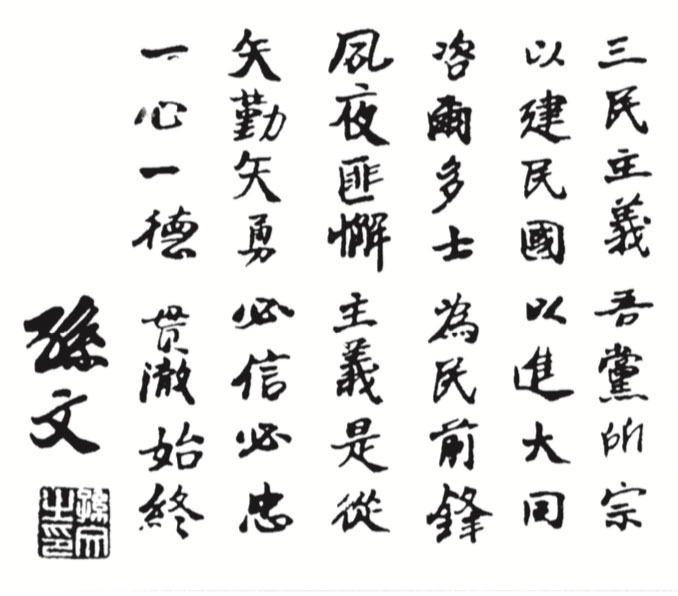 三民主義 吾黨所宗
以建民國 以進大同
咨爾多士 為民前鋒
夙夜匪懈 主義是從
矢勤矢勇 必信必忠
一心一德 貫澈始終
孫文
孫文之印